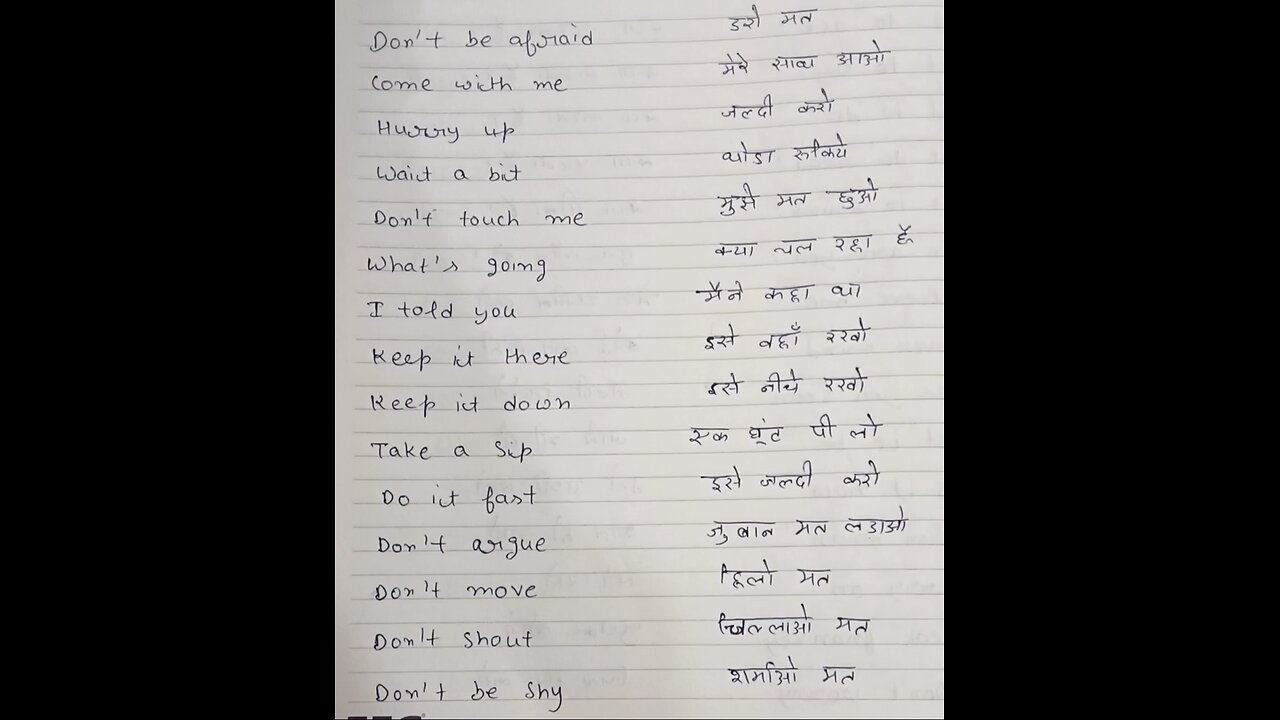 Don't be afraid डरो मत
Come with me मेरे साथ आओ
Hurry up जल्दी करो
Wait a bit थोडा रुकिये
Don't touch me मुझे मत छुओ
What's going क्या चल रहा है
I told you मैंने कहा था
Keep it there इसे वहाँ रखो
Keep it down इसे नीचे रखो
Take a Sip एक घूंट पी लो
Do it fast इसे जल्दी करो
Don't argue जुबान मत लडाओ
Don't move हिलो मत
Don't shout चिल्लाओ मत
Don't be Shy शर्माओ मत